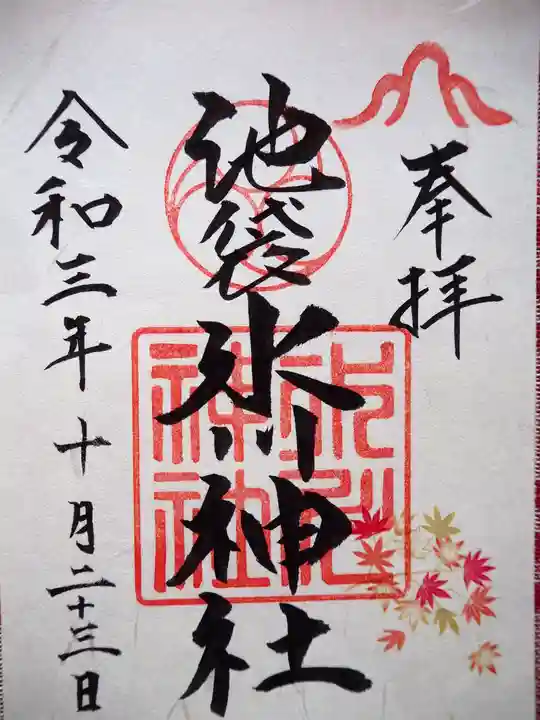 奉拝
池袋氷川神社
氷川神社
令和三年十月二十三日